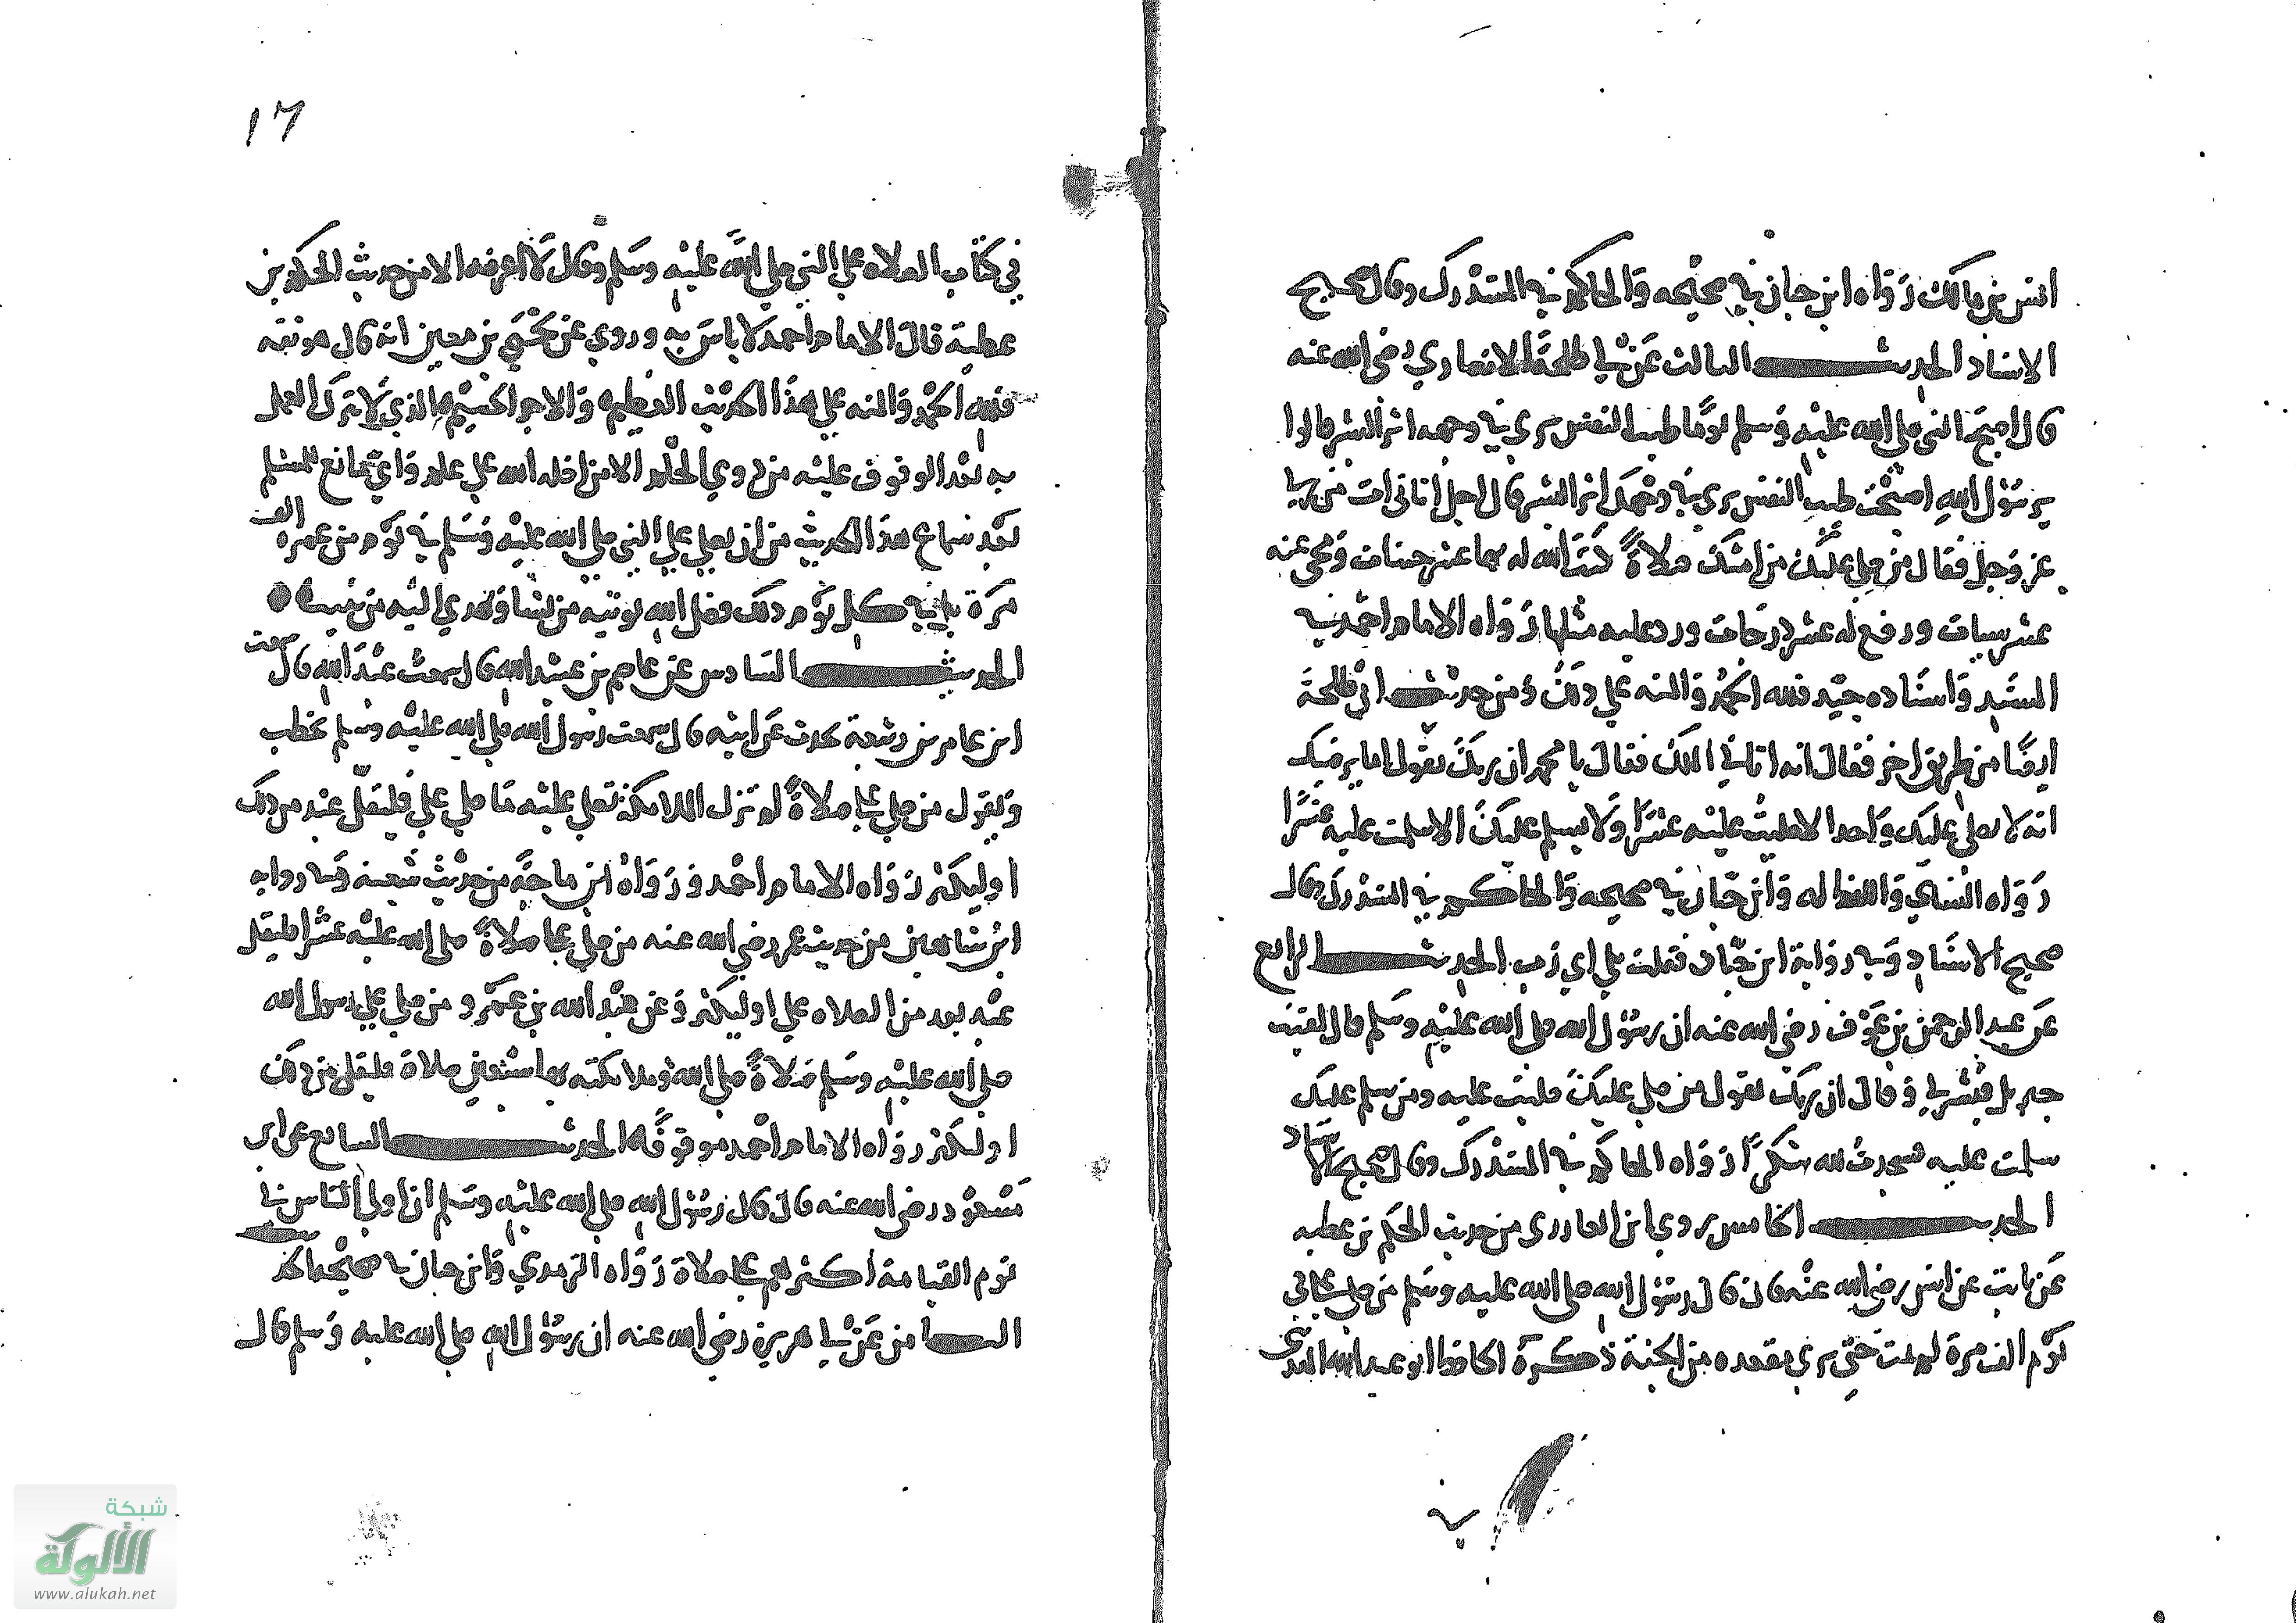 انس بن مالك رَوَاه ابن حبان في صحيحه وَالحاكم في المستدرك وقال صحيح
الاسناد الحديث الثالث عَنْ ابي طلحَة الانصاري رضي الله عنه
قال اصبح النبي صلى الله عليه وَسلم يومًا طيب النفس يرى في وجهه اثر البشر قالوا
يرسُول الله اصبَحْت طيب النفس يرى في وجهك اثر البشر قال اجل اتاني ات من ربي
عز وَجل فقال من صلى عليك من امتك صلاةً كتبَ الله له بها عشر حسنات وَمحى عنه
عشر سيات ورفع له عشر درَجات ورد عليه مثلها رَوَاه الامام احمد في
المسنَد وَاسنَاده جيّد فلله الحمْدُ وَالمنه على ذلكَ ومن حديث ابي طلحة
ايضًا من طريق اخر فقال انه اتاني الملك فقال يا محمد ان ربكَ يقول اما يرضيك
انه لا يصلي عليك وَاحد الا صليتُ عليْه عشرًا وَلا يسلم عليكَ الا سلمت عليه عشرًا
رَوَاه النسَاي وَاللفظ له وَابن حبّان في صحيحه وَالحاكم في المستدرك وقال
صحيح الاسنَاد وَفي روَاية ابن حبّان فقلت بلى اي رَب الحديث الرابع
عَن عبد الرحمن بن عَوْف رضي الله عنه ان رسُول الله صلى الله عليْه وسَلم قال لقيت
جبريل فبَشرني وَقالَ ان ربكَ يقول من صلى عليكَ صليت عليه ومن سلم عليك
سلمت عليه فسجدتُ لله شكرًا رَوَاه الحاكم في المستدرك وقال صحيح الاسناد
الحديث الخامس روي ابن الغازي من حديث الحكم بن عطيه
عَن ثابت عن انس رضي الله عنْه قال قال رسُول الله صلى الله عليه وسَلم من صلى على في
يَوْم الف مرة لم يمت حتى يرى مقعده من الجنة ذكرَهُ الحافظ ابو عبد الله المقدسي
١٦
في كتاب الصلاه على النبي صلى الله عليْه وسَلم وقال لا اعرفه الا من حديث الحكم بن
عطية قالَ الامام احمد لا باسَ به وروي عن يحْيَى بن معين انه قال هو ثقه
فلله الحمْد وَالمنه على هذَا الحديث العظيم وَالاجر الجسيم والذي لا يترك العمل
به بعْد الوقوف عليْه من ذوي الحلم الا من اضله الله على علم وَايّ مانع للمسْلم
بَعْد سماع هذَا الحديث من ان يصلي على النبي صلى الله عليْه وَسَلم في يَوْم من عمره الف
مرَة بل في كل يَوْم ذلك فضل الله يوتيه من يشَا وَيهدي اليْه من ينيب
الحديث السَادس عَن عاصم بن عبَيْد الله قال سمعت عبْدَ الله قال سمعت
ابن عامر بن ربيْعة يحدث عَن ابيْه قال سمعت رسول الله صلى الله عليْه وسَلم يخطب
وَيقول من صلى علي صلاةً لم تزل الملايكة تصلي عليْه مَا صلى علي فليقلّ عبْد من ذلك
اوليكثر رَوَاه الامام احْمد وَرَوَاهُ ابن ماجَة من حديْث شعبَة وَفي رواية
ابن شاهين من حديث عمر رضي الله عنه من صلى علي صلاةً صلى الله عليْه عشرًا فليقل
عبْد بعد من الصلاه علي اوليكثر وَعن عبْد الله بن عمْرو من صلى على رسول الله
صلى الله عليْه وسَلم صَلاةً صلى الله وملايكته بها سبْعين صلاة فليقل من ذلك
اوليكثر روَاه الامام احْمد موقوفًا الحديث السابع عن ابن
مسْعود رضي الله عنه قالَ قال رسُول الله صلى الله عليْه وسَلم ان اولى النَاس بي
يَوْم القيامة اكثرهم علي صلاة رَوَاه الترمذي وَابن حبان في صحيْحه الحديث
الثامن عَن ابي هريرة رضي الله عنه ان رسُول الله صلى الله عليه وَسلم قال
شبكة
الألوكة
www.alukah.net